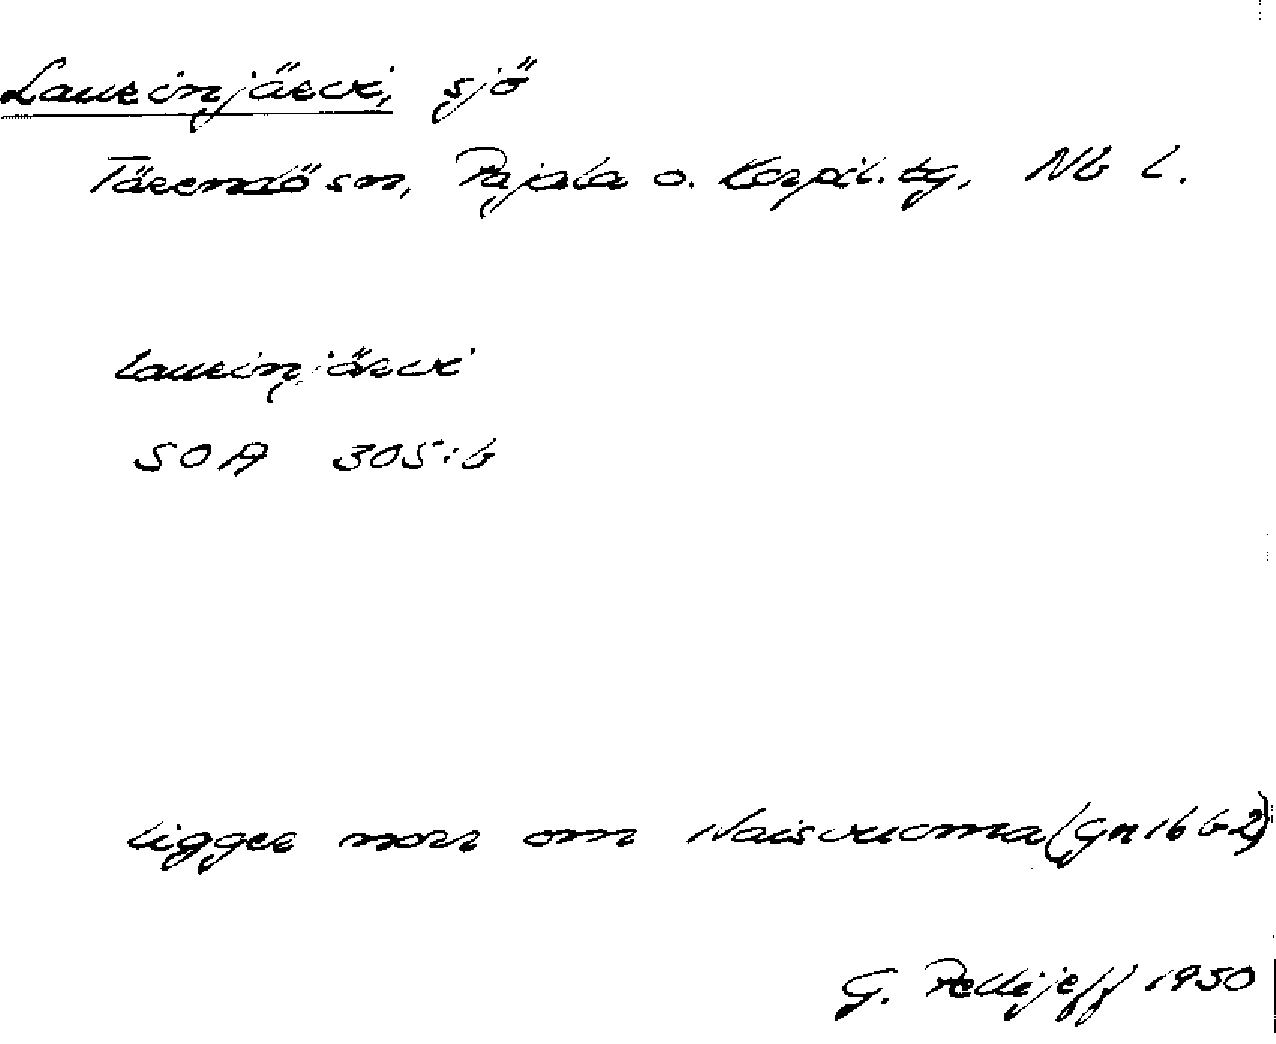 Laurinjärvi, sjö
Tärendö sn, Pajala o. Korpil. tg, Nb l.
Laurinjärvi
SOA 305:6
ligger norr om Naisvuoma (Gn 16 b 2)
G. Pellijeff 1950